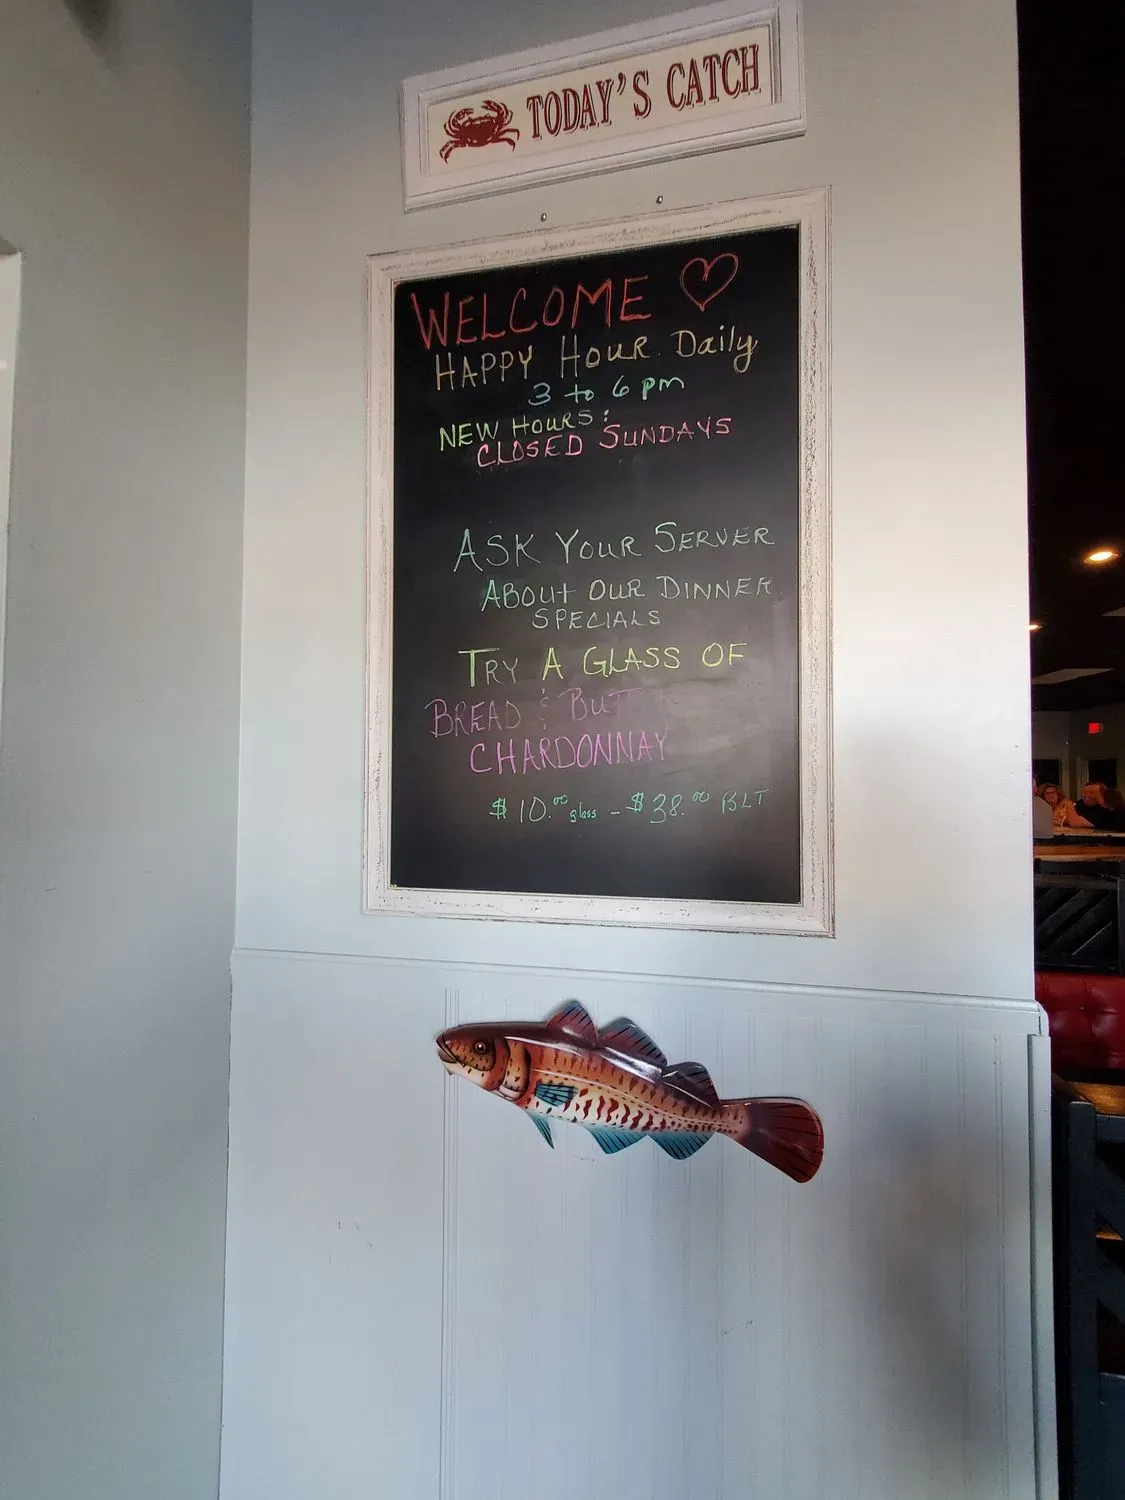 TODAY'S CATCH
WELCOME
HAPPY HOUR Daily
3 to 6 pm
NEW HOURS:
CLOSED SUNDAYS
ASK YOUR SERVER
ABOUT OUR DINNER
SPECIALS
TRY A GLASS OF
BREAD & BUT
CHARDONNAY
$10.00 glass - $38.00 BLT